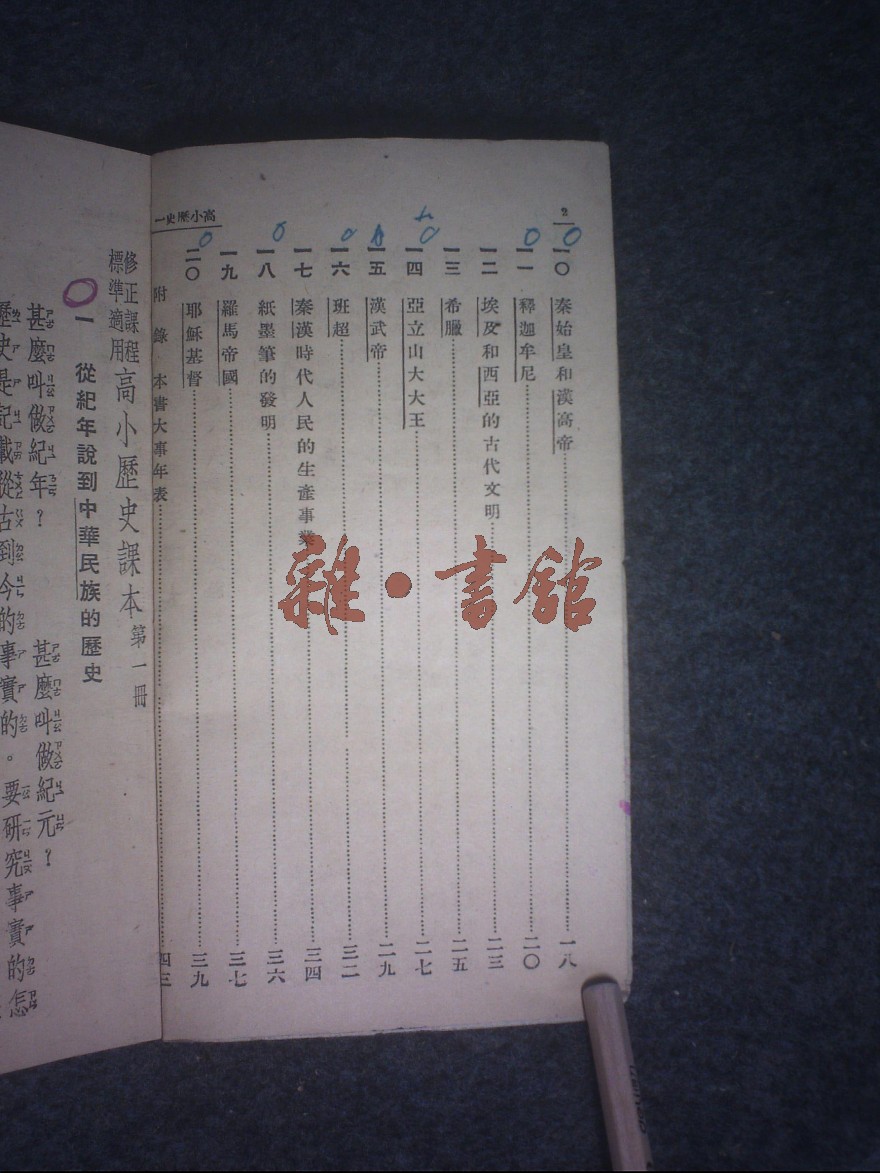 2
一〇 秦始皇和漢高帝 一八
一一 釋迦牟尼 二〇
一二 埃及和西亞的古代文明 二三
一三 希臘 二五
一四 亞立山大大王 二七
一五 漢武帝 二九
一六 班超 三二
一七 秦漢時代人民的生產事業 三四
一八 紙墨筆的發明 三六
一九 羅馬帝國 三七
二〇 耶穌基督 三九
附錄 本書大事年表 四三
高小歷史一
雜·書館
修正課程
標準適用
高小歷史課本 第一冊
一 從紀年說到中華民族的歷史
甚麼叫做紀年? 甚麼叫做紀元?
歷史是記載從古到今的事實的。要研究事實的怎